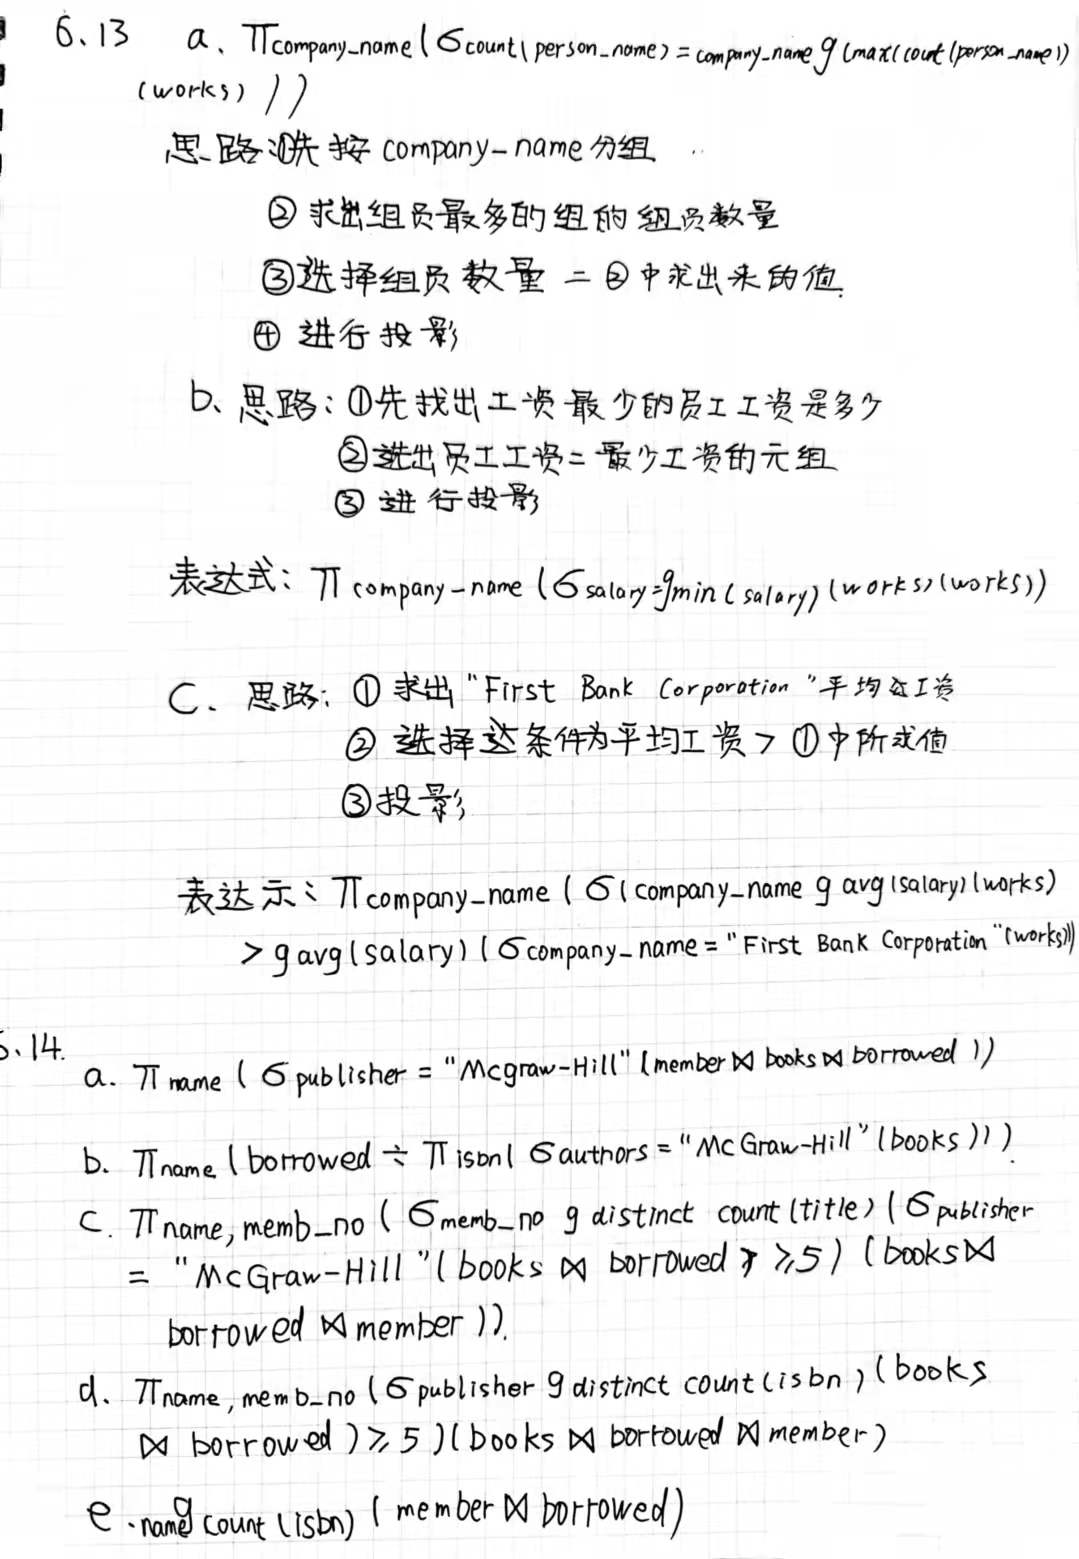 6.13 a、π company_name (σ count(person_name) = company_name g (max(count(person_name))
(works) ))
思路:①先按 company-name 分组
② 求出组员最多的组的组员数量
③选择组员数量 = ②中求出来的值.
④ 进行投影
b、思路: ①先找出工资最少的员工工资是多少
②选出员工工资= 最少工资的元组
③ 进行投影
表达式: π company-name (σ salary=g min(salary)(works)(works))
C. 思路: ① 求出 "First Bank Corporation" 平均工资
② 选择条件为平均工资 > ①中所求值
③投影
表达示: π company_name (σ(company_name g avg(salary)(works)
> g avg(salary) (σ company_name = "First Bank Corporation"(works)))
6.14.
a. π name (σ publisher = "Mcgraw-Hill" (member ⋈ books ⋈ borrowed ))
b. π name (borrowed ÷ π isbn( σ authors = "McGraw-Hill" (books)))
C. π name, memb_no (σ memb_no g distinct count(title) (σ publisher
= "McGraw-Hill" (books ⋈ borrowed ) ≥5) (books⋈
borrowed ⋈ member )).
d. π name, memb_no (σ publisher g distinct count(isbn) (books
⋈ borrowed ) ≥ 5 )(books ⋈ borrowed ⋈ member)
e. name g count (isbn) (member ⋈ borrowed)